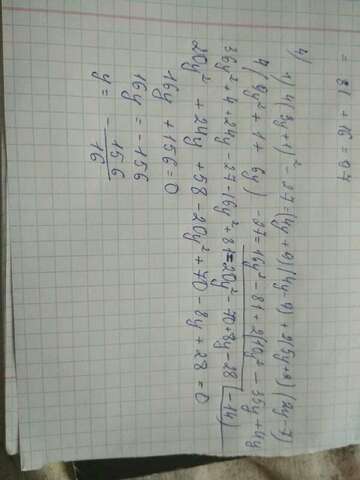 = 81 + 16 = 97
4)
1) 4(3y+1)² - 27 = (4y+9)(4y-9) + 2(5y+2)(2y-7)
4(9y²+1+6y) - 27 = 16y² - 81 + 2(10y² - 35y + 4y - 14)
36y² + 4 + 24y - 27 - 16y² + 81 = 20y² - 70 + 8y - 28
20y² + 24y + 58 - 20y² + 70 - 8y + 28 = 0
16y + 156 = 0
16y = - 156
y = - 156/16